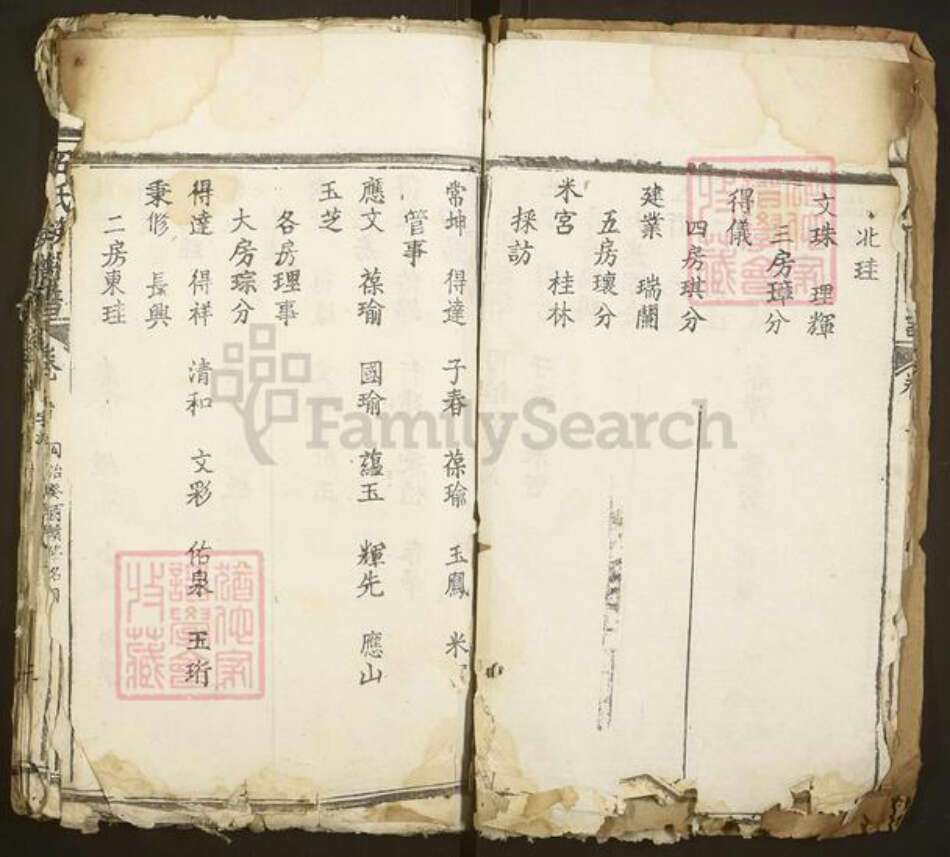 兆珪
文珠 理輝
三房璋分
得儀
四房琪分
建業 瑞蘭
五房瓌分
米宮 桂林
採訪
常坤 得達 子春 葆瑜 玉鳳 米
管事
應文 葆瑜 國瑜 蘊玉 輝先 應山
玉芝
各房理事
大房琮分
得達 得祥 清和 文彩 佑泉 玉珩
秉修 長興
二房東珪
氏
卷
同治
猶他家譜學會收藏
猶他家譜學會收藏
FamilySearch